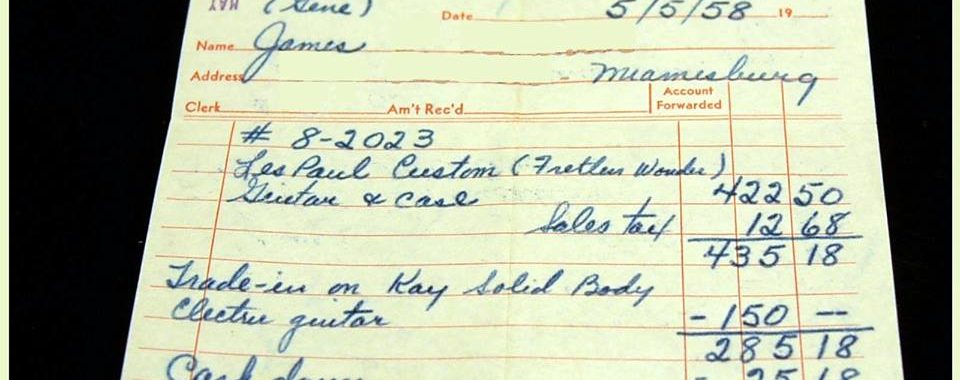 MAY (Gene)
Date 5/5/58 19
Name James
Address Miamesburg
Clerk Am't Rec'd. Account Forwarded
# 8-2023
Les Paul Custom (Fretless Wonder)
Guitar & Case 422 50
Sales tax 12 68
435 18
Trade-in on Kay Solid Body
Electric guitar - 150 --
285 18
Cash down - 25 18